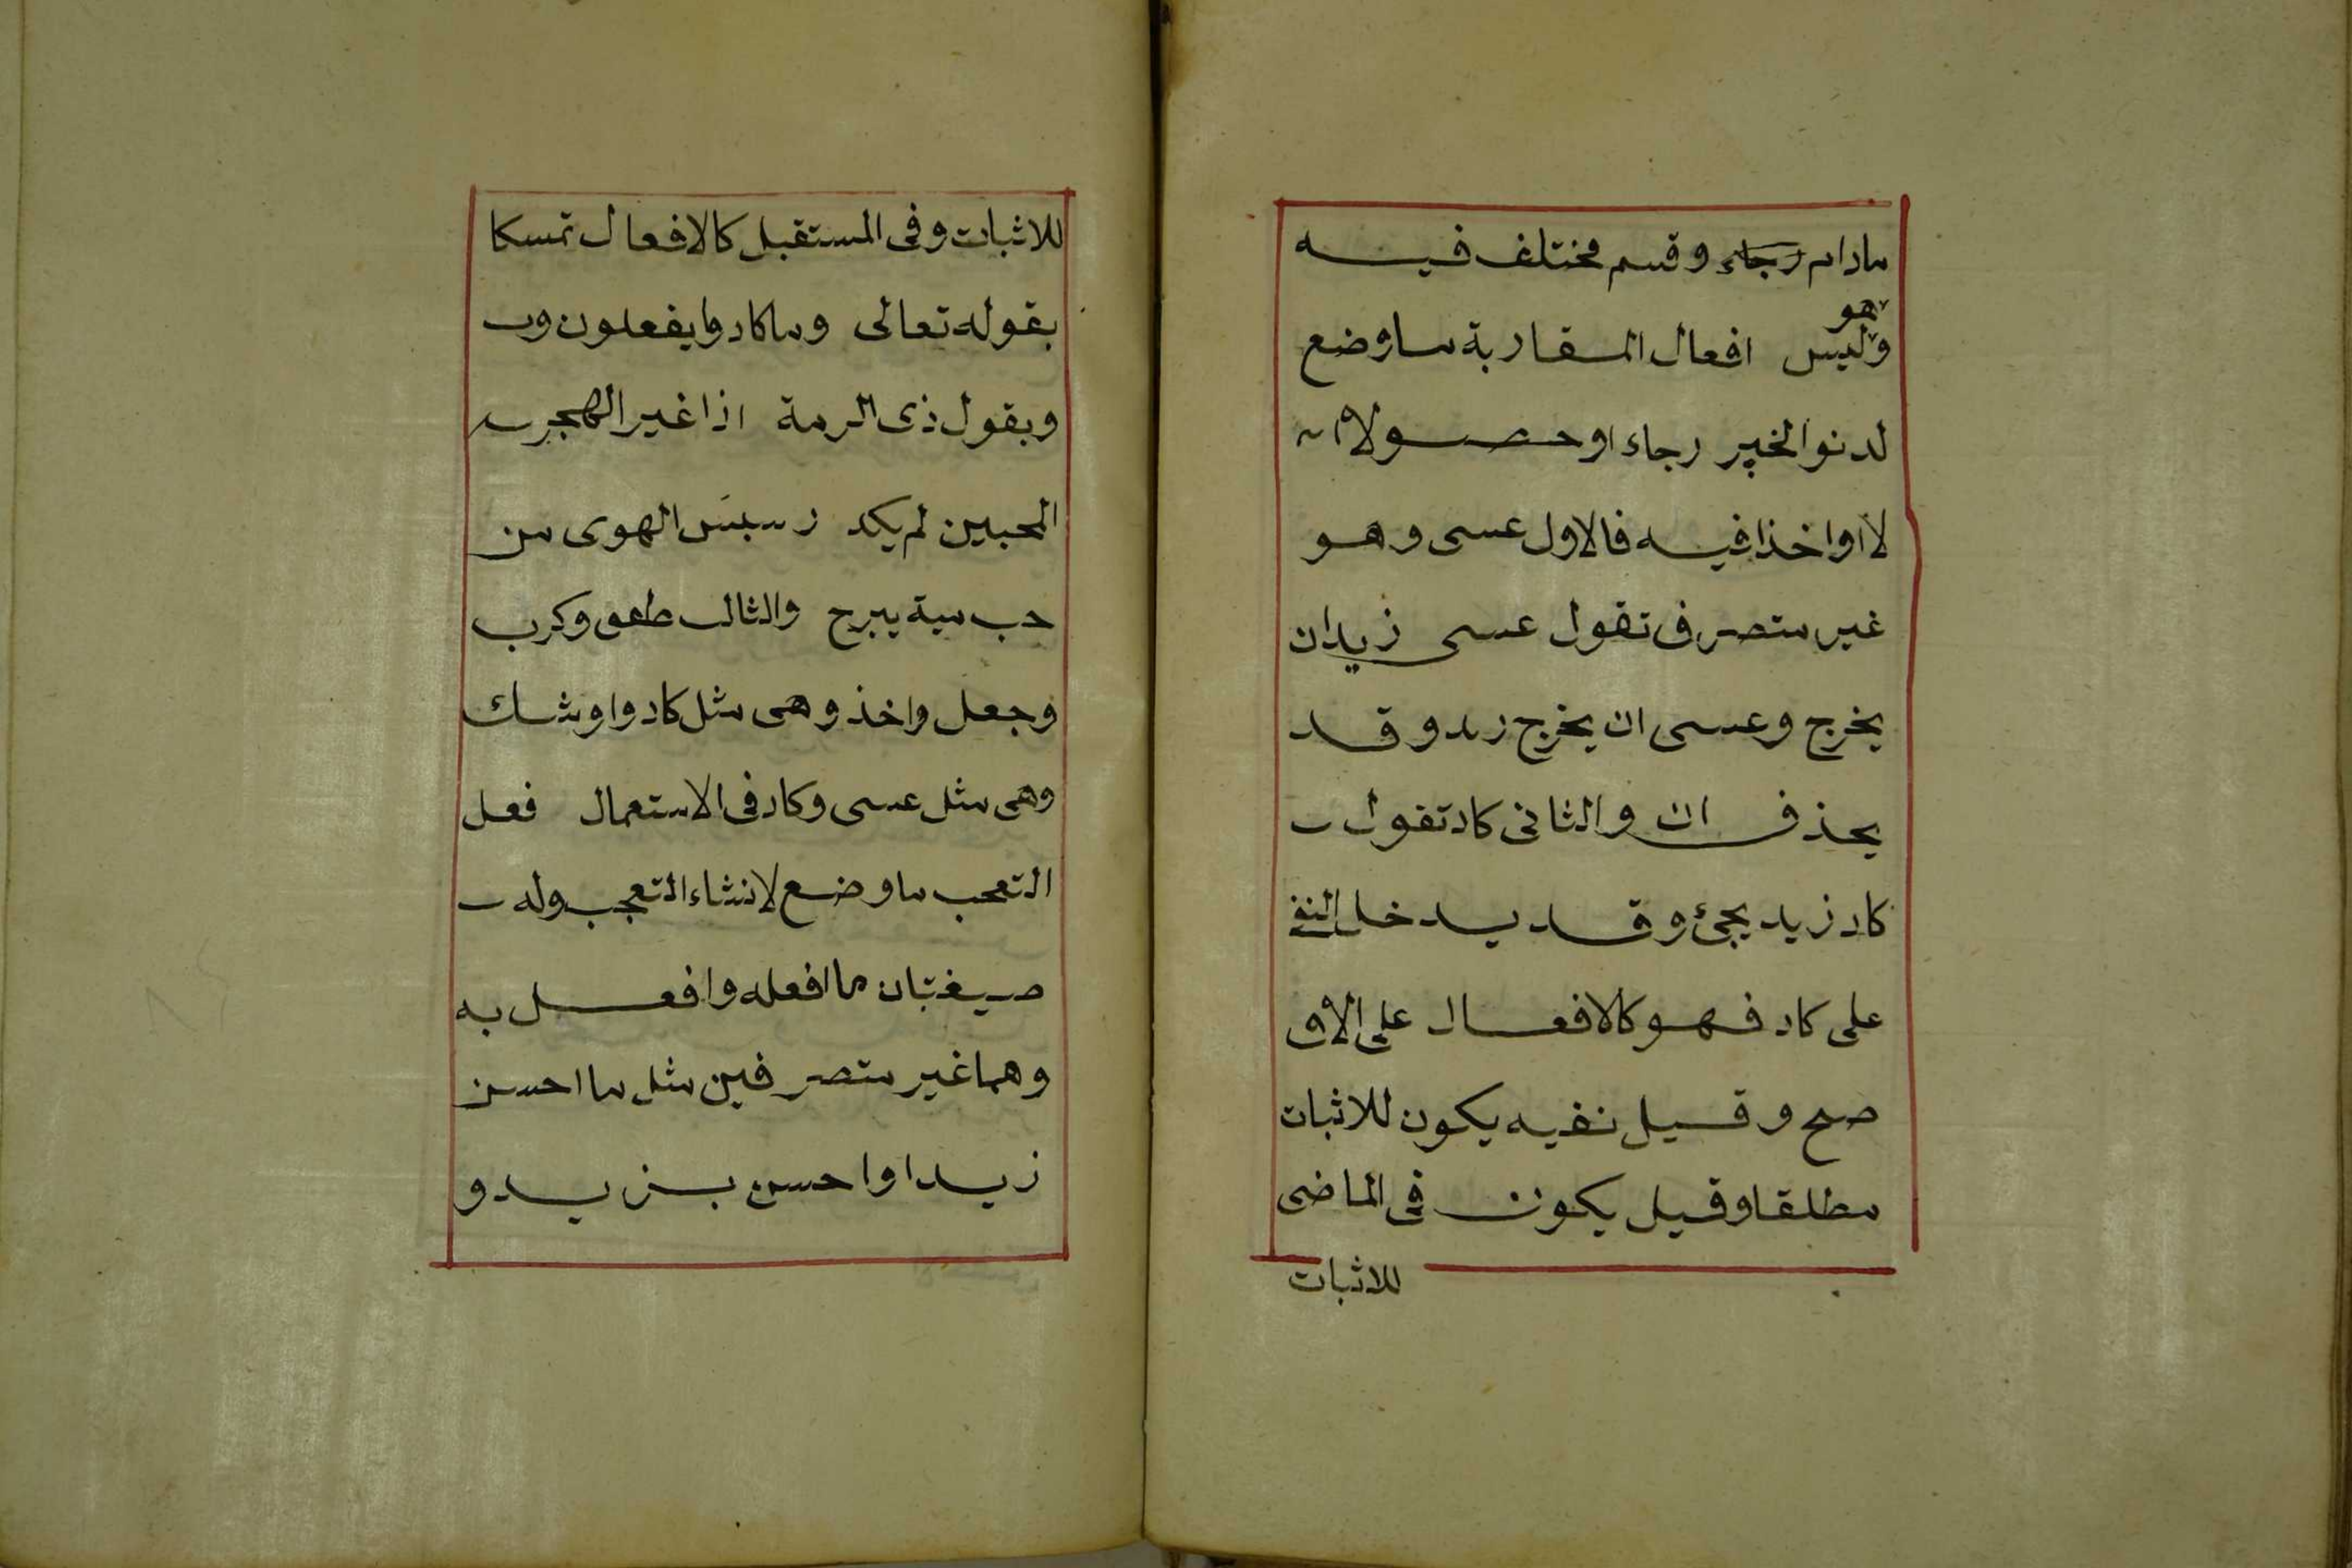 مادام رجاء وقسم مختلف فيه
هو
وليس افعال المقاربة ماوضع
لدنوالخبر رجاء اوحصولا
لااواخذافيه فالاول عسى وهو
غير متصرف تقول عسى زيدان
يخرج وعسى ان يخرج زيد وقد
يحذف ان والثانى كاد تقول
كاد زيد يجئ وقد يدخل النفى
على كاد فهو كالافعال على الا
صح وقيل نفيه يكون للاثبات
مطلقا وقيل يكون فى الماضى
للاثبات
للاثبات وفى المستقبل كالافعال تمسكا
بقوله تعالى وماكادوا يفعلون وب
وبقول ذى الرمة اذا غير الهجر
المحبين لم يكد رسيس الهوى من
حب مية يبرح والثالث طفق وكرب
وجعل واخذ وهى مثل كاد واوشك
وهى مثل عسى وكاد فى الاستعمال فعل
التعجب ماوضع لانشاء التعجب وله
صيغتان ماافعله وافعل به
وهما غير متصرفين مثل مااحسن
زيدا واحسن بزيد و